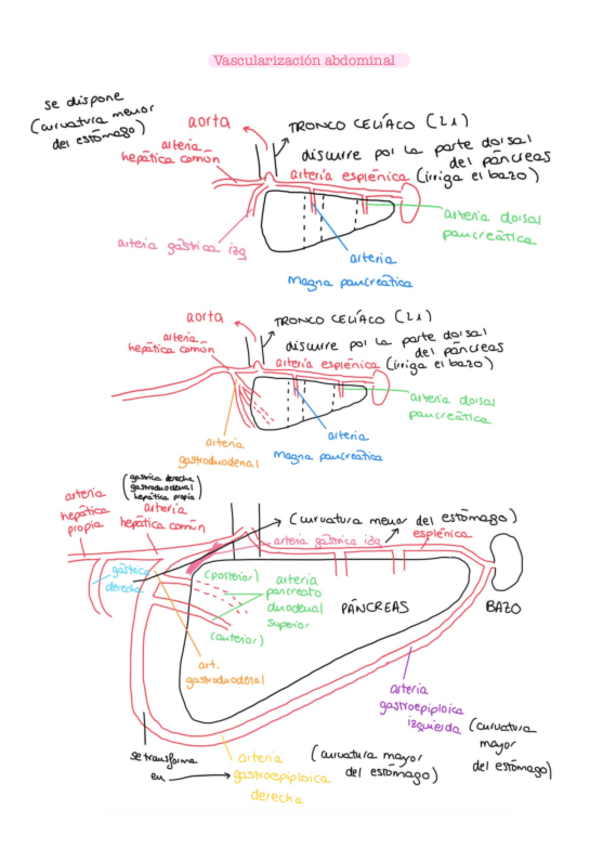 Vascularización abdominal
se dispone
(curvatura menor
del estómago)
aorta
TRONCO CELÍACO (L1)
arteria
hepática común
discurre por la parte dorsal
del páncreas
arteria esplénica (irriga el bazo)
arteria dorsal
pancreática
arteria gástrica izq
arteria
magna pancreática
aorta
TRONCO CELÍACO (L1)
arteria
hepática común
discurre por la parte dorsal
del páncreas
arteria esplénica (irriga el bazo)
arteria dorsal
pancreática
arteria
gastroduodenal
arteria
magna pancreática
(gástrica derecha
gastroduodenal
hepática propia)
arteria
hepática
propia
arteria
hepática común
(curvatura menor del estómago)
arteria gástrica izq
esplénica
gástrica
derecha
(posterior)
arteria
pancreato
duodenal
superior
(anterior)
PÁNCREAS
BAZO
art.
gastroduodenal
arteria
gastroepiploica
izquierda
(curvatura
mayor
del estómago)
se transforma
en
arteria
gastroepiploica
derecha
(curvatura mayor
del estómago)